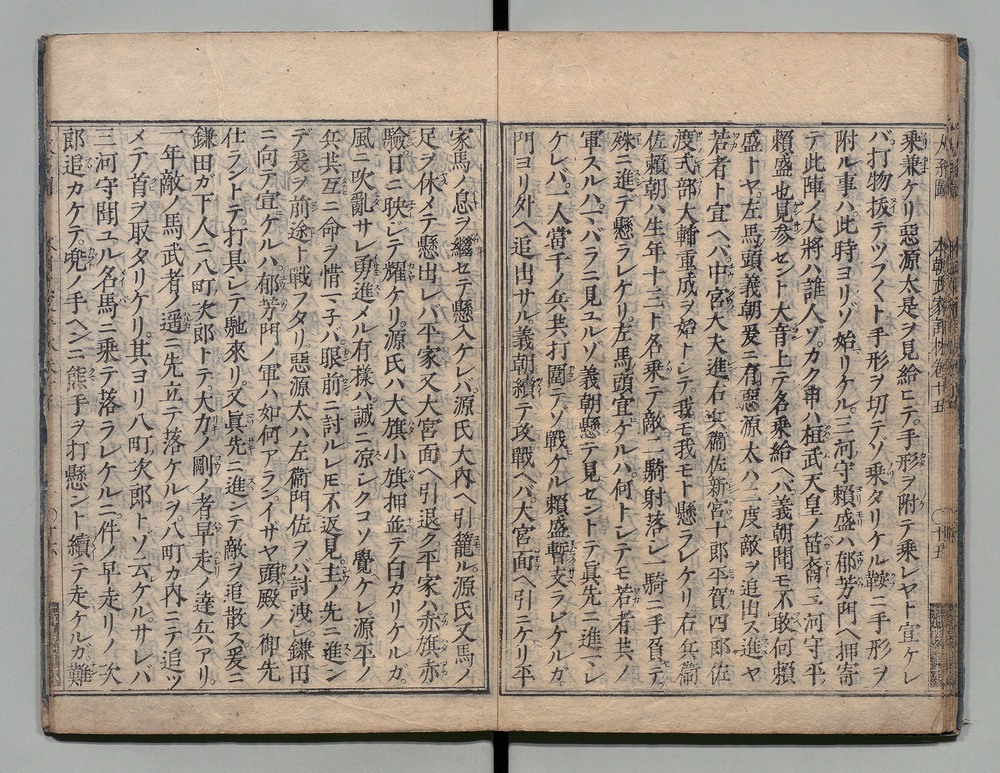 乗兼ケリ惡源太是ヲ見給ヒテ手形ヲ附テ乗レヤト宣ケレ
バ打物抜テツフ〱ト手形ヲ切テゾ乗タリケル鞍ニ手形ヲ
附ル事ハ此時ヨリゾ始リケル三河守頼盛ハ郁芳門ヘ押寄
テ此陣ノ大將ハ誰人ゾカク申ハ桓武天皇ノ苗裔三河守平
頼盛也見参セント大音上テ名乗給ヘバ義朝聞モ不敢何頼
盛トヤ左馬頭義朝爰ニ有惡源太ハ二度敵ヲ追出ス進ヤ
若者ト宣ヘバ中宮大夫進右兵衞佐新宮十郎平賀四郎佐
渡式部大輔重成ヲ始トシテ我モ我モト懸ラレケリ右兵衞
佐頼朝ハ生年十三ト名乗テ敵二騎射落シ一騎ニ手負テ
殊ニ進テ懸ラレケリ左馬頭宣ケルハ何トシテモ若者共ノ
軍スルハマバラニ見ユルゾ義朝懸テ見セントテ眞先ニ進マレ
ケレバ一人當千ノ兵共打圍テゾ戰ケル頼盛暫支ラレケルガ
門ヨリ外ヘ追出サル義朝續テ攻戰ヘバ大宮面ヘ引ニケリ平
家馬ノ息ヲ繼セテ懸入ケレバ源氏大内ヘ引籠ル源氏又馬ノ
足ヲ休メテ懸出レバ平家又大宮面ヘ引退ク平家ハ赤旗赤
驗日ニ映シテ耀ケリ源氏ハ大旗小旗押並テ白カリケルガ
風ニ吹亂サレ勇進メル有樣ハ誠ニ凉シクコソ覺ケレ源平ノ
兵共互ニ命ヲ惜マズ子バ眼前ニ討ルレ𪜈不返見主ノ先ニ進ン
デ爰ヲ前途ト戰フタリ惡源太ハ左衞門佐ヲバ討洩シ鎌田
ニ向テ宣ケルハ郁芳門ノ軍ハ如何アランイザヤ頭殿ノ御先
仕ラントテ打具シテ馳來リ又眞先ニ進ンテ敵ヲ追散ス爰ニ
鎌田ガ下人ニ八町次郎トテ大力ノ剛ノ者早走ノ達兵アリ
一年敵ノ馬武者ノ遥ニ先立テ落ケルヲ八町カ内ニテ追ツ
メテ首ヲ取タリケリ其ヨリ八町次郎トソ云ケルサレバ
三河守聞ユル名馬ニ乗テ落ラレケルニ件ノ早走リノ次
郎追カケテ兜ノ手ヘンニ熊手ヲ打懸ント續テ走ケルガ難